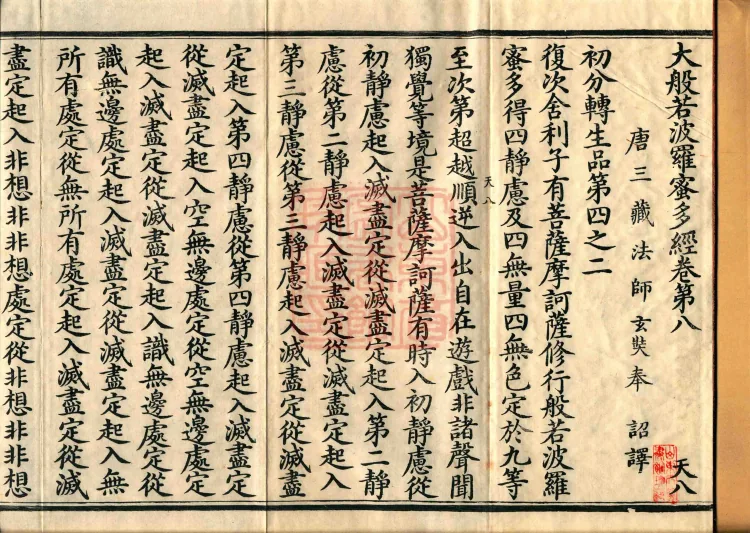 大般若波羅蜜多經卷第八
天八
唐三藏法師玄奘奉 詔譯
初分轉生品第四之二
復次舍利子有菩薩摩訶薩修行般若波羅
蜜多得四靜慮及四無量四無色定於九等
至次第超越順逆入出自在遊戲非諸聲聞
天八
獨覺等境是菩薩摩訶薩有時入初靜慮從
初靜慮起入滅盡定從滅盡定起入第二靜
慮從第二靜慮起入滅盡定從滅盡定起入
第三靜慮從第三靜慮起入滅盡定從滅盡
定起入第四靜慮從第四靜慮起入滅盡定
從滅盡定起入空無邊處定從空無邊處定
起入滅盡定從滅盡定起入識無邊處定從
識無邊處定起入滅盡定從滅盡定起入無
所有處定從無所有處定起入滅盡定從滅
盡定起入非想非非想處定從非想非非想